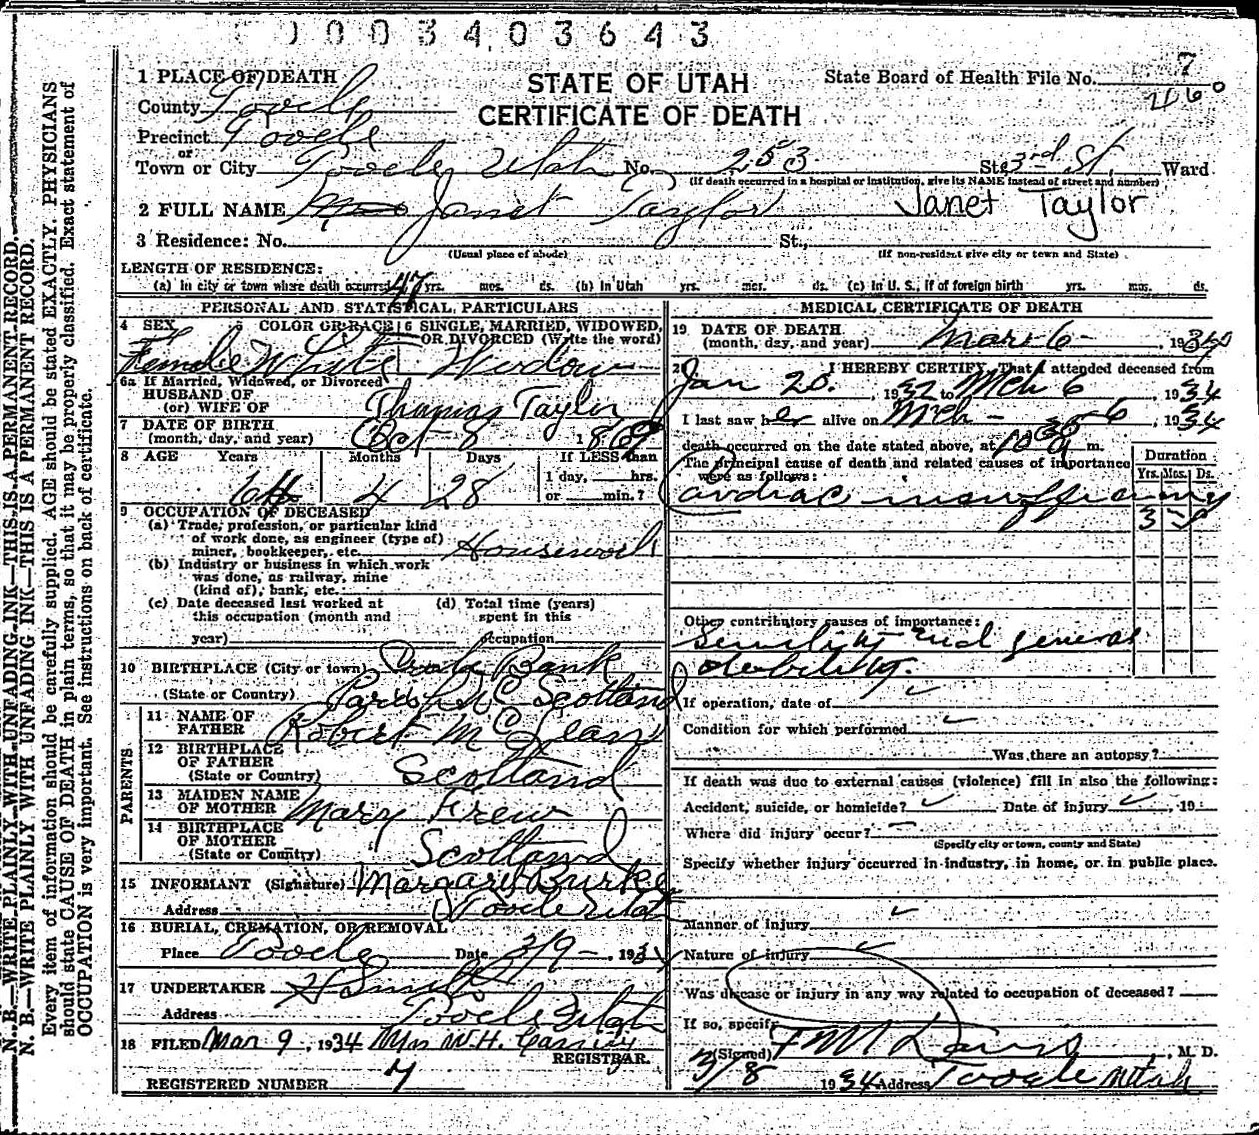 0003403643
1 PLACE OF DEATH
STATE OF UTAH
CERTIFICATE OF DEATH
State Board of Health File No. 7
460
County Tooele
Precinct Tooele
or
Town or City Tooele, Utah No. 253 St. 3rd St. Ward
(If death occurred in a hospital or institution, give its NAME instead of street and number)
2 FULL NAME Mrs Janet Taylor Janet Taylor
3 Residence: No. St.,
(Usual place of abode) (If non-resident give city or town and State)
LENGTH OF RESIDENCE:
(a) In city or town where death occurred 47 yrs. mos. ds. (b) In Utah yrs. mos. ds. (c) In U. S., if of foreign birth yrs. mos. ds.
PERSONAL AND STATISTICAL PARTICULARS
4 SEX 5 COLOR OR RACE 6 SINGLE, MARRIED, WIDOWED,
OR DIVORCED (Write the word)
Female White Widow
6a If Married, Widowed, or Divorced
HUSBAND OF
(or) WIFE OF Thomas Taylor
7 DATE OF BIRTH
(month, day, and year) Oct-8 1869
8 AGE Years Months Days If LESS than
1 day, hrs.
or min.?
64 4 28
9 OCCUPATION OF DECEASED
(a) Trade, profession, or particular kind
of work done, as engineer (type of)
miner, bookkeeper, etc. Housework
(b) Industry or business in which work
was done, as railway, mine
(kind of), bank, etc.
(c) Date deceased last worked at
this occupation (month and
year)
(d) Total time (years)
spent in this
occupation
10 BIRTHPLACE (City or town) Bank
(State or Country) Scotland
PARENTS
11 NAME OF
FATHER Robert McLean
12 BIRTHPLACE
OF FATHER
(State or Country) Scotland
13 MAIDEN NAME
OF MOTHER Mary Frew
14 BIRTHPLACE
OF MOTHER
(State or Country) Scotland
15 INFORMANT (Signature) Margaret Burke
Address Tooele Utah
16 BURIAL, CREMATION, OR REMOVAL
Place Tooele Date 3/9- , 1934
17 UNDERTAKER
Address Tooele Utah
18 FILED Mar 9, 1934 Mrs W.H. Cassity
REGISTRAR.
REGISTERED NUMBER 7
MEDICAL CERTIFICATE OF DEATH
19 DATE OF DEATH
(month, day, and year) Mar 6- , 1934
20 I HEREBY CERTIFY, That I attended deceased from
Jan 20. , 1932 to Mch 6 , 1934
I last saw her alive on Mch - 6 , 1934
death occurred on the date stated above, at 10 a m.
The principal cause of death and related causes of importance
were as follows:
Duration
Yrs. Mos. Ds.
Cardiac insufficiency
3
Other contributory causes of importance:
Senility and general
debility.
If operation, date of
Condition for which performed
Was there an autopsy?
If death was due to external causes (violence) fill in also the following:
Accident, suicide, or homicide? Date of injury , 19
Where did injury occur?
(Specify city or town, county and State)
Specify whether injury occurred in industry, in home, or in public place.
Manner of injury
Nature of injury
Was disease or injury in any way related to occupation of deceased?
If so, specify
(Signed) F M Davis , M. D.
3/8 1934 Address Tooele Utah
N. B.—WRITE PLAINLY WITH UNFADING INK—THIS IS A PERMANENT RECORD.
N. B.—WRITE PLAINLY WITH UNFADING INK—THIS IS A PERMANENT RECORD.
Every item of information should be carefully supplied. AGE should be stated EXACTLY. PHYSICIANS
should state CAUSE OF DEATH in plain terms, so that it may be properly classified. Exact statement of
OCCUPATION is very important. See instructions on back of certificate.